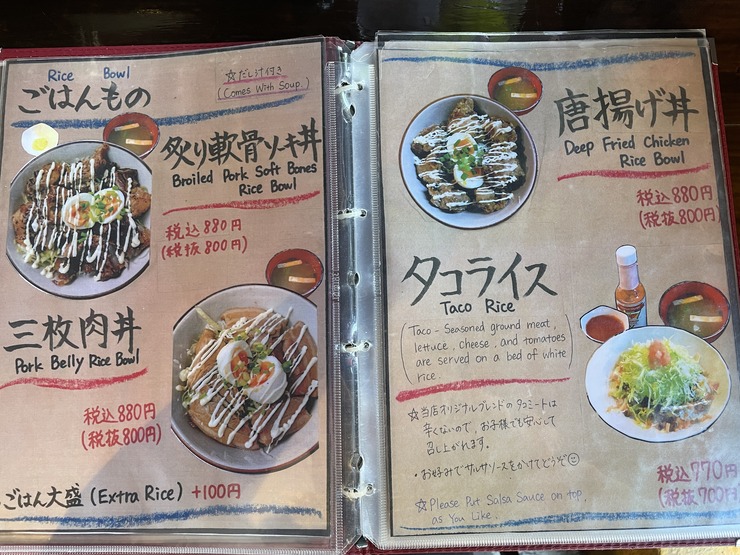 Rice Bowl
ごはんもの
☆だし汁付き
(Comes With Soup.)
炙り軟骨ソーキ丼
Broiled Pork Soft Bones
Rice Bowl
税込880円
(税抜800円)
三枚肉丼
Pork Belly Rice Bowl
税込880円
(税抜800円)
ごはん大盛(Extra Rice) +100円
唐揚げ丼
Deep Fried Chicken
Rice Bowl
税込880円
(税抜800円)
タコライス
Taco Rice
(Taco-Seasoned ground meat,
lettuce, cheese. and tomatoes
are served on a bed of white
rice.
☆当店オリジナルブレンドのタコミートは
辛くないので、お子様でも安心して
召し上がれます。
・お好みでサルサソースをかけてどうぞ☺
☆Please Put Salsa Sauce on top,
as You Like.
税込770円
(税抜700円)